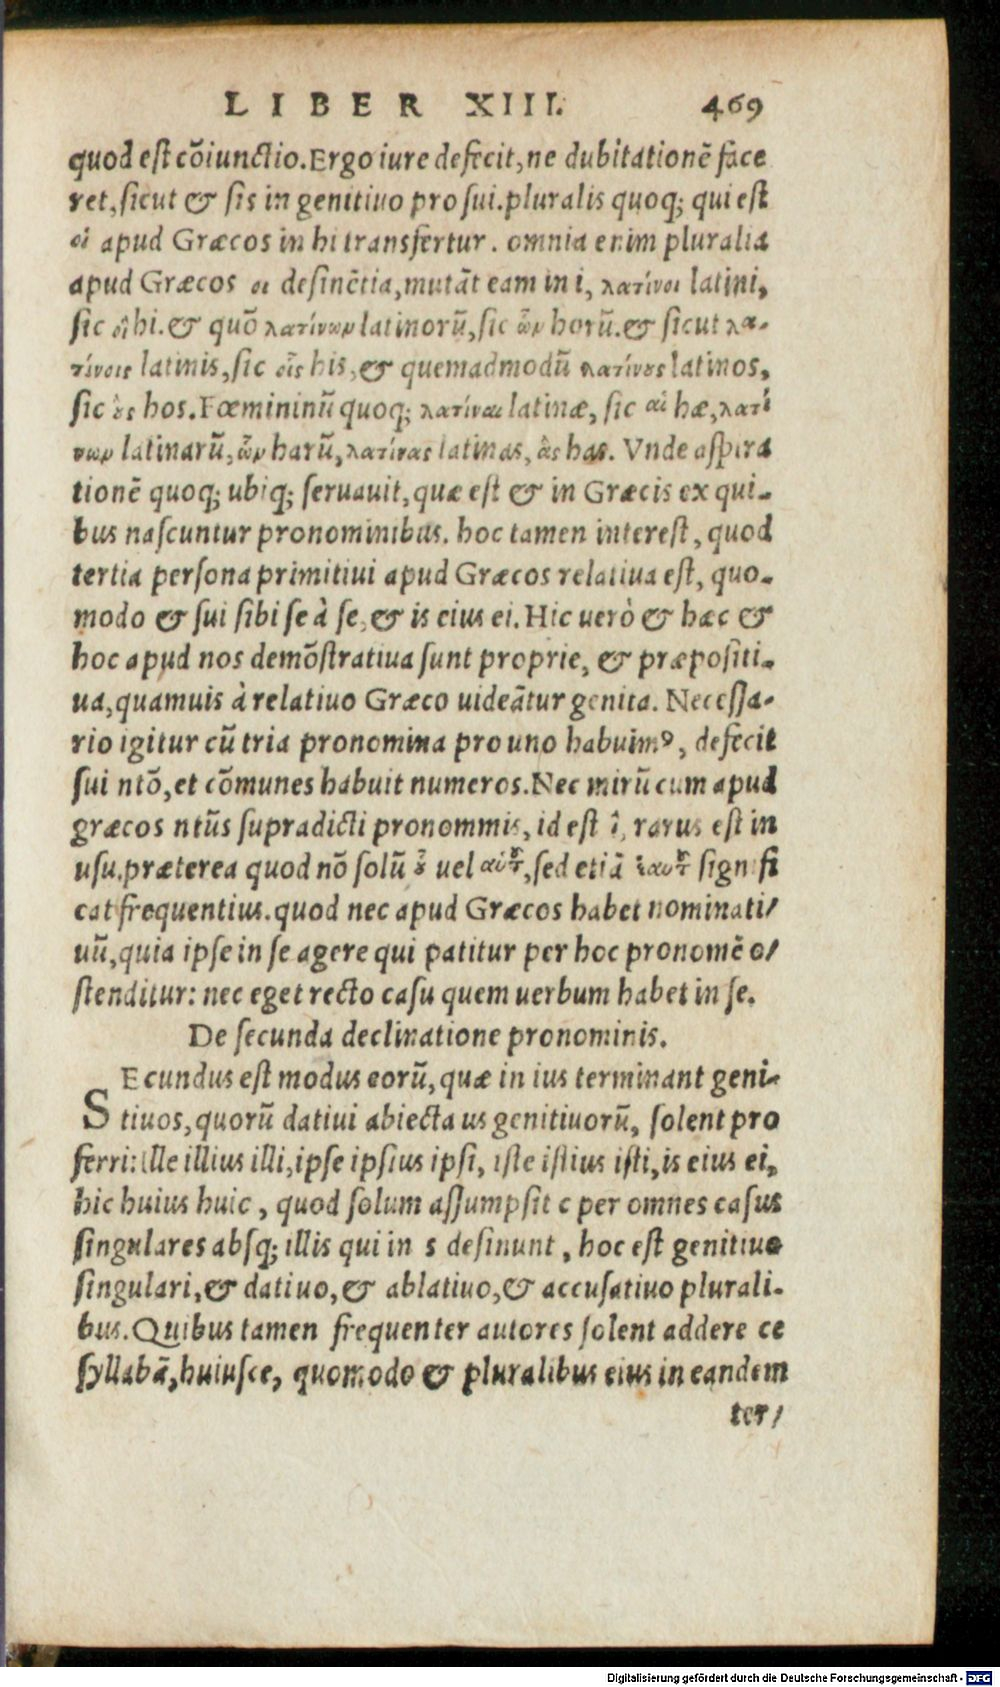 LIBER XIII. 469
quod est cõiunctio. Ergo iure defecit, ne dubitationẽ face
ret, sicut & sis in genitiuo pro sui. pluralis quoq; qui est
οἱ apud Græcos in hi transfertur. omnia enim pluralia
apud Græcos οι desinẽtia, mutãt eam in i, λατίνοι latini,
sic οἵ hi. & quõ λατίνων latinorũ, sic ὧν horũ. & sicut λα-
τίνοις latinis, sic οἷς his, & quemadmodũ λατίνους latinos,
sic οὓς hos. Fœmininũ quoq; λατίναι latinæ, sic αἱ hæ, λατί
νων latinarũ, ὧν harũ, λατίνας latinas, ἃς has. Vnde aspira
tionẽ quoq; ubiq; seruauit, quæ est & in Græcis ex qui-
bus nascuntur pronominibus. hoc tamen interest, quod
tertia persona primitiui apud Græcos relatiua est, quo-
modo & sui sibi se à se, & is eius ei. Hic uerò & hæc &
hoc apud nos demõstratiua sunt proprie, & præpositi-
ua, quamuis à relatiuo Græco uideãtur genita. Necessa-
rio igitur cũ tria pronomina pro uno habuimꝰ, defecit
sui ntõ, et cõmunes habuit numeros. Nec mirũ cum apud
græcos ntũs supradicti pronominis, id est ἵ, rarus est in
usu. præterea quod nõ solũ οὗ uel αὐτοῦ, sed etiã ἑαυτοῦ signifi
cat frequentius. quod nec apud Græcos habet nominati/
uũ, quia ipse in se agere qui patitur per hoc pronomẽ o/
stenditur: nec eget recto casu quem uerbum habet in se.
De secunda declinatione pronominis.
SEcundus est modus eorũ, quæ in ius terminant geni-
tiuos, quorũ datiui abiecta us genitiuorũ, solent pro
ferri: ille illius illi, ipse ipsius ipsi, iste istius isti, is eius ei,
hic huius huic, quod solum assumpsit c per omnes casus
singulares absq; illis qui in s desinunt, hoc est genitiuo
singulari, & datiuo, & ablatiuo, & accusatiuo plurali-
bus. Quibus tamen frequenter autores solent addere ce
syllabã, huiusce, quomodo & pluralibus eius in eandem
ter/
Digitalisierung gefördert durch die Deutsche Forschungsgemeinschaft - DFG